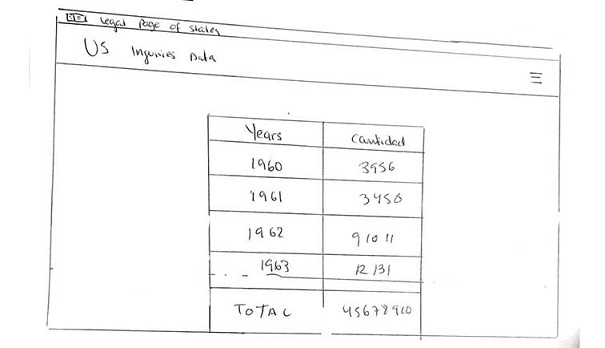 Legal Page of States
US Inguries Data
Years Cantided
1960 3956
1961 3456
1962 9 10 11
1963 12 131
TOTAL 45678910